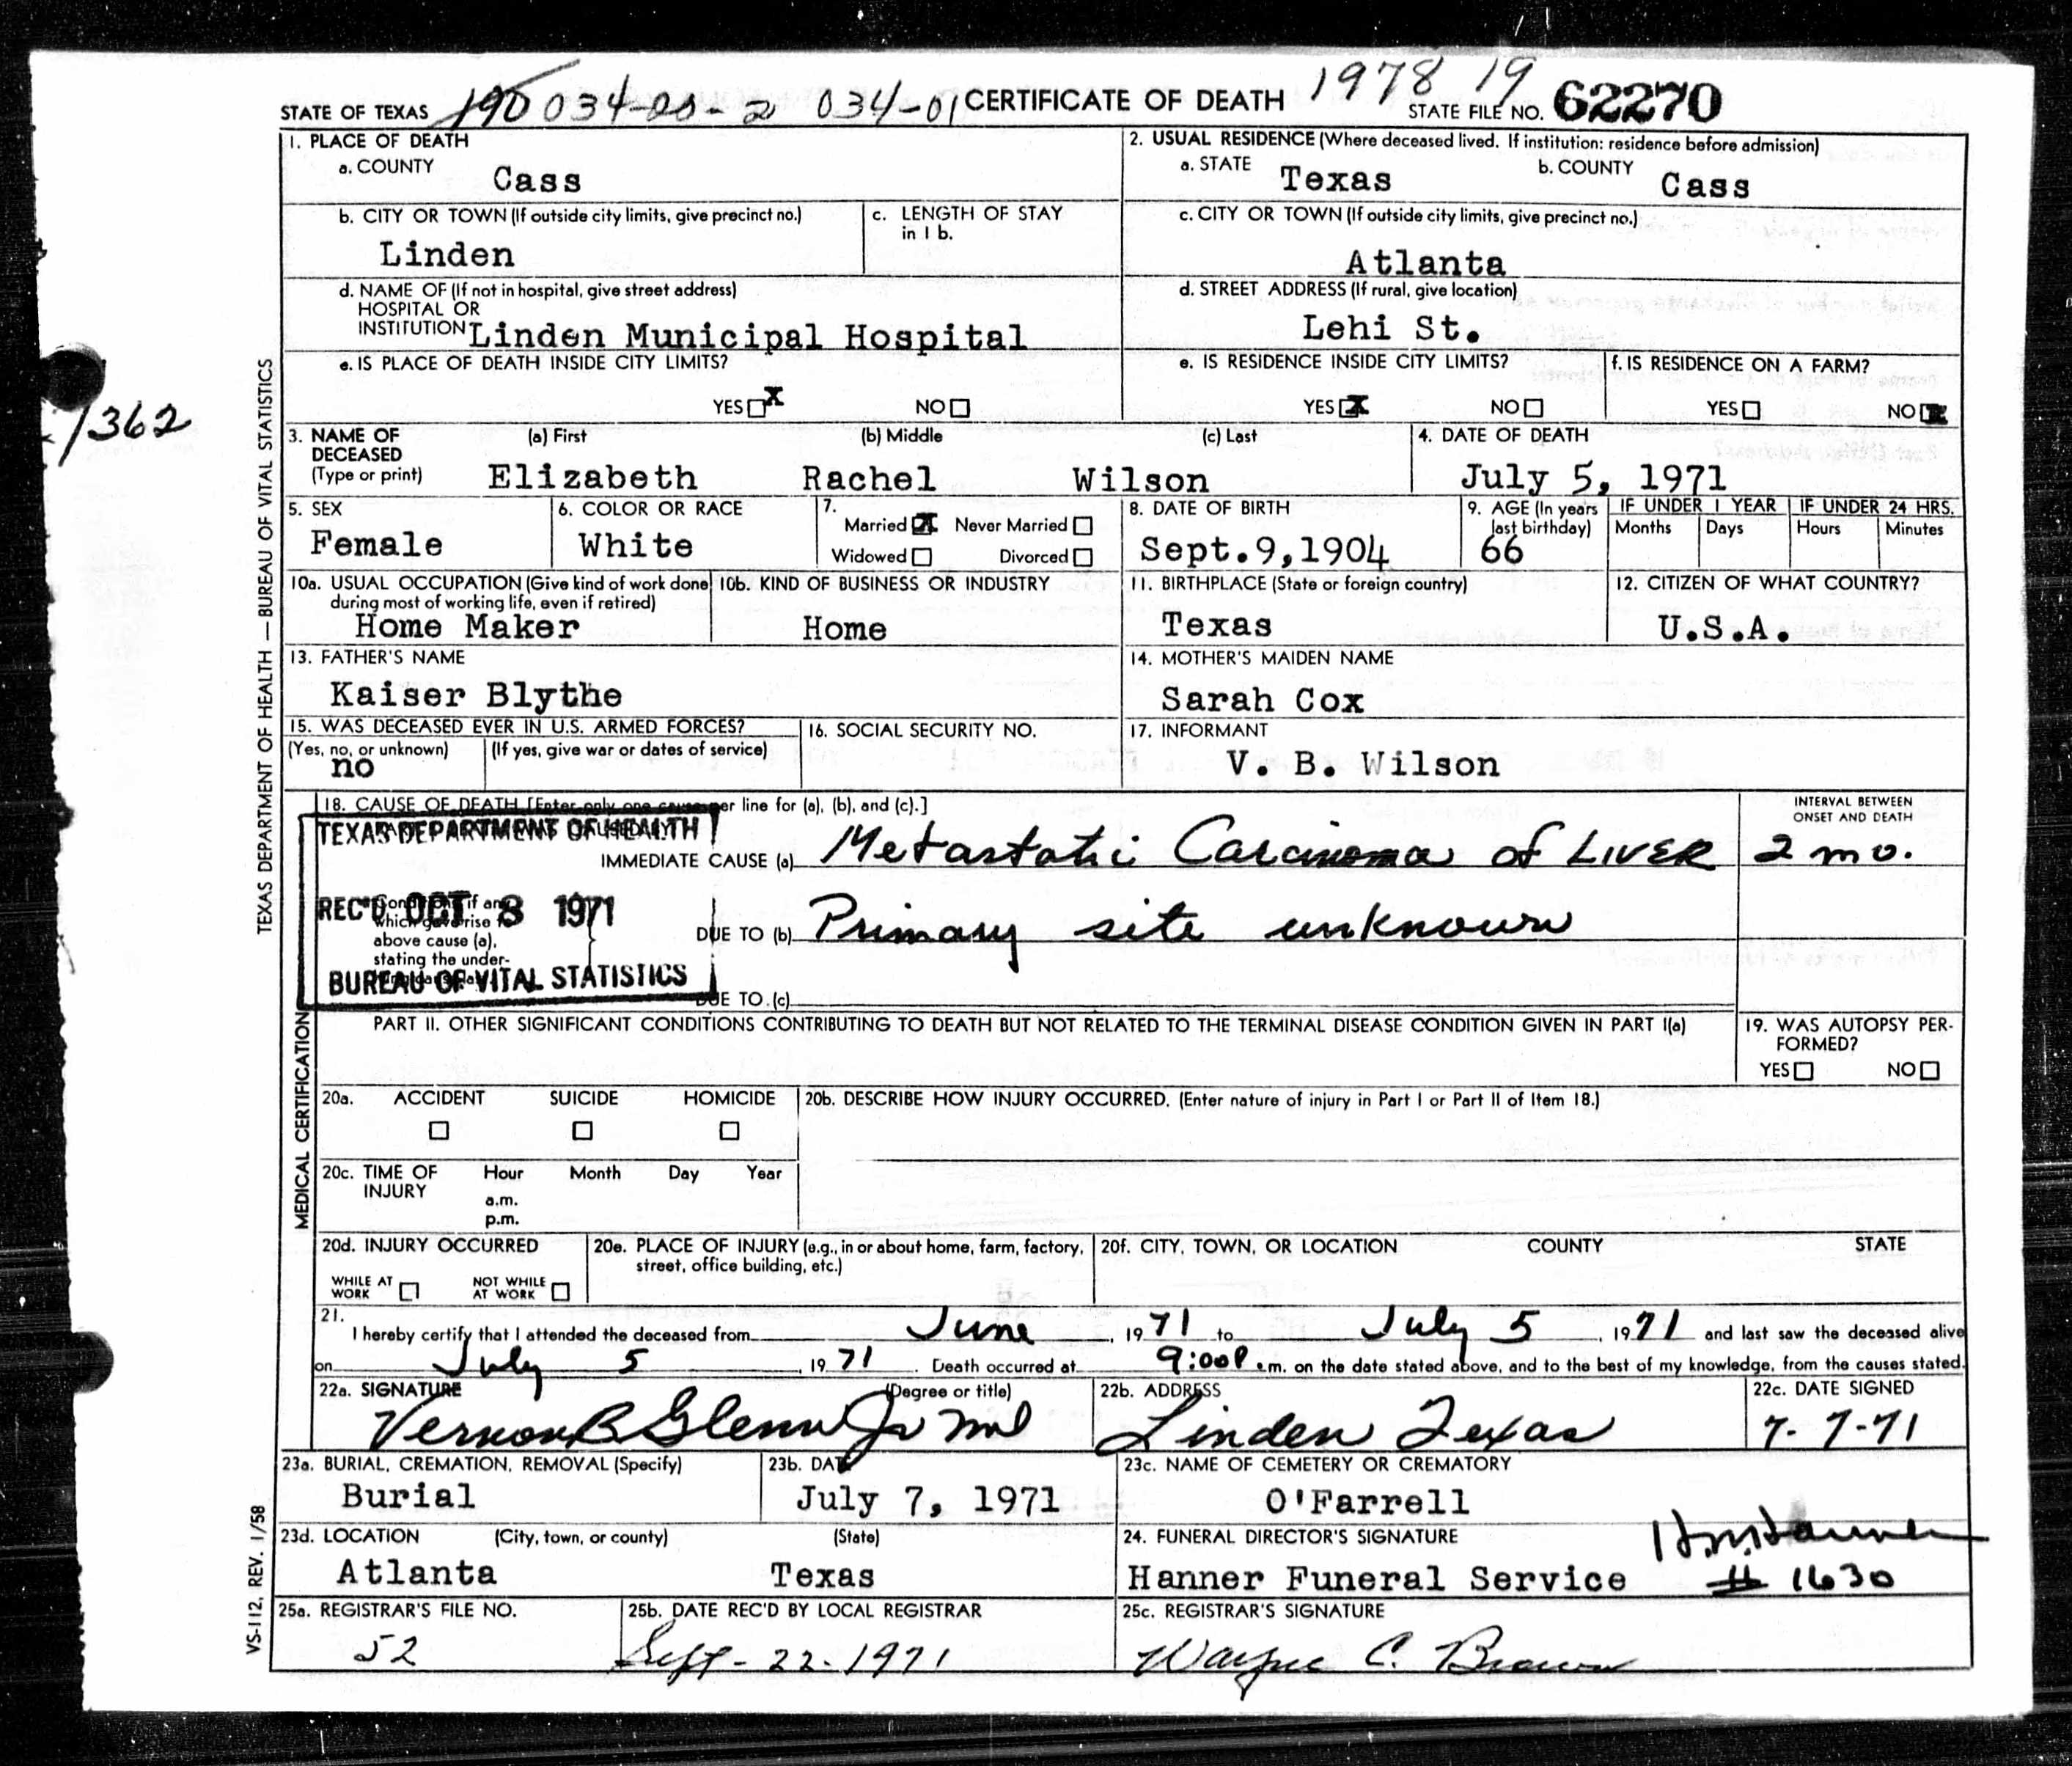 STATE OF TEXAS 190 034-00-2 034-01 CERTIFICATE OF DEATH 1978 19 STATE FILE NO. 62270
1. PLACE OF DEATH
a. COUNTY Cass
2. USUAL RESIDENCE (Where deceased lived. If institution: residence before admission)
a. STATE Texas b. COUNTY Cass
b. CITY OR TOWN (If outside city limits, give precinct no.) Linden
c. LENGTH OF STAY in 1 b.
c. CITY OR TOWN (If outside city limits, give precinct no.) Atlanta
d. NAME OF (If not in hospital, give street address)
HOSPITAL OR
INSTITUTION Linden Municipal Hospital
d. STREET ADDRESS (If rural, give location)
Lehi St.
e. IS PLACE OF DEATH INSIDE CITY LIMITS?
YES X NO
e. IS RESIDENCE INSIDE CITY LIMITS?
YES X NO
f. IS RESIDENCE ON A FARM?
YES NO X
1362
3. NAME OF DECEASED (Type or print)
(a) First (b) Middle (c) Last
Elizabeth Rachel Wilson
4. DATE OF DEATH
July 5, 1971
5. SEX
Female
6. COLOR OR RACE
White
7.
Married X Never Married
Widowed Divorced
8. DATE OF BIRTH
Sept.9,1904
9. AGE (In years last birthday)
66
IF UNDER 1 YEAR
Months Days
IF UNDER 24 HRS.
Hours Minutes
10a. USUAL OCCUPATION (Give kind of work done
during most of working life, even if retired)
Home Maker
10b. KIND OF BUSINESS OR INDUSTRY
Home
11. BIRTHPLACE (State or foreign country)
Texas
12. CITIZEN OF WHAT COUNTRY?
U.S.A.
13. FATHER'S NAME
Kaiser Blythe
14. MOTHER'S MAIDEN NAME
Sarah Cox
15. WAS DECEASED EVER IN U.S. ARMED FORCES?
(Yes, no, or unknown) (If yes, give war or dates of service)
no
16. SOCIAL SECURITY NO.
17. INFORMANT
V. B. Wilson
18. CAUSE OF DEATH [Enter only one cause per line for (a), (b), and (c).]
INTERVAL BETWEEN
ONSET AND DEATH
TEXAS DEPARTMENT OF HEALTH
IMMEDIATE CAUSE (a) Metastatic Carcinoma of LIVER 2 mo.
REC'D OCT 8 1971
above cause (a),
stating the under-
DUE TO (b) Primary site unknown
BUREAU OF VITAL STATISTICS
DUE TO (c)
PART II. OTHER SIGNIFICANT CONDITIONS CONTRIBUTING TO DEATH BUT NOT RELATED TO THE TERMINAL DISEASE CONDITION GIVEN IN PART I(a)
19. WAS AUTOPSY PER-
FORMED?
YES NO
20a. ACCIDENT SUICIDE HOMICIDE
20b. DESCRIBE HOW INJURY OCCURRED. (Enter nature of injury in Part I or Part II of Item 18.)
20c. TIME OF INJURY Hour Month Day Year
a.m.
p.m.
20d. INJURY OCCURRED
WHILE AT WORK NOT WHILE AT WORK
20e. PLACE OF INJURY (e.g., in or about home, farm, factory,
street, office building, etc.)
20f. CITY, TOWN, OR LOCATION COUNTY STATE
21.
I hereby certify that I attended the deceased from June, 1971 to July 5, 1971 and last saw the deceased alive
on July 5, 1971. Death occurred at 9:00P.m. on the date stated above, and to the best of my knowledge, from the causes stated.
22a. SIGNATURE (Degree or title)
Vernon B Glenn Jr MD
22b. ADDRESS
Linden Texas
22c. DATE SIGNED
7-7-71
23a. BURIAL, CREMATION, REMOVAL (Specify)
Burial
23b. DATE
July 7, 1971
23c. NAME OF CEMETERY OR CREMATORY
O'Farrell
23d. LOCATION (City, town, or county) (State)
Atlanta Texas
24. FUNERAL DIRECTOR'S SIGNATURE H.M. Hanner
Hanner Funeral Service # 1630
25a. REGISTRAR'S FILE NO.
52
25b. DATE REC'D BY LOCAL REGISTRAR
Sept-22-1971
25c. REGISTRAR'S SIGNATURE
Wayne C. Brown
TEXAS DEPARTMENT OF HEALTH — BUREAU OF VITAL STATISTICS
MEDICAL CERTIFICATION
VS-112, REV. 1/58